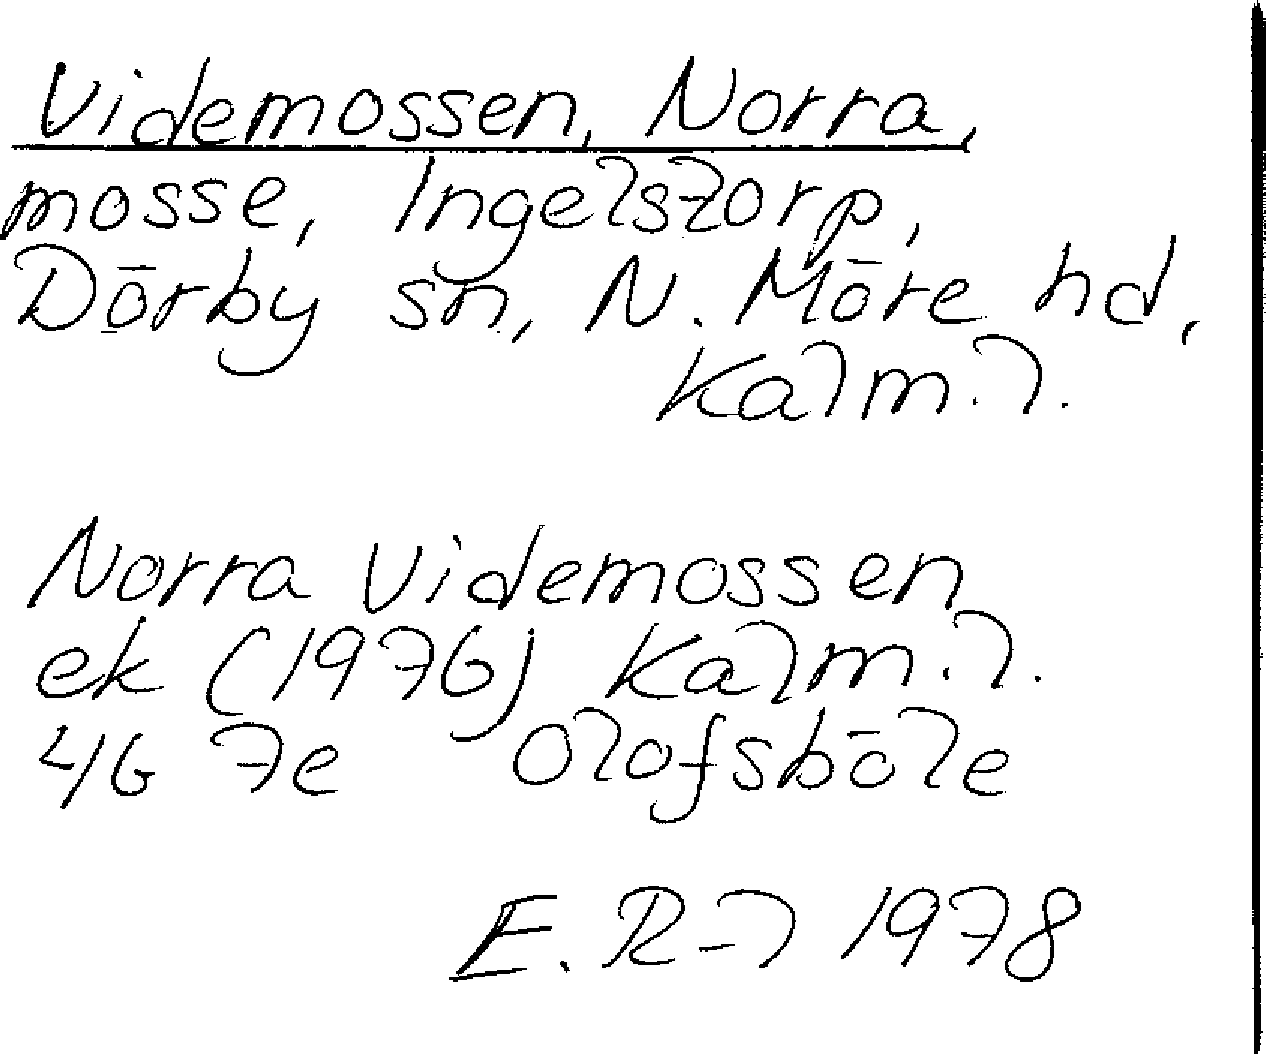 Videmossen, Norra,
mosse, Ingelstorp,
Dörby sn, N. Möre hd,
Kalm. l.
Norra Videmossen
ek (1976) Kalm. l.
4G 7e Olofsböle
E. R-l 1978